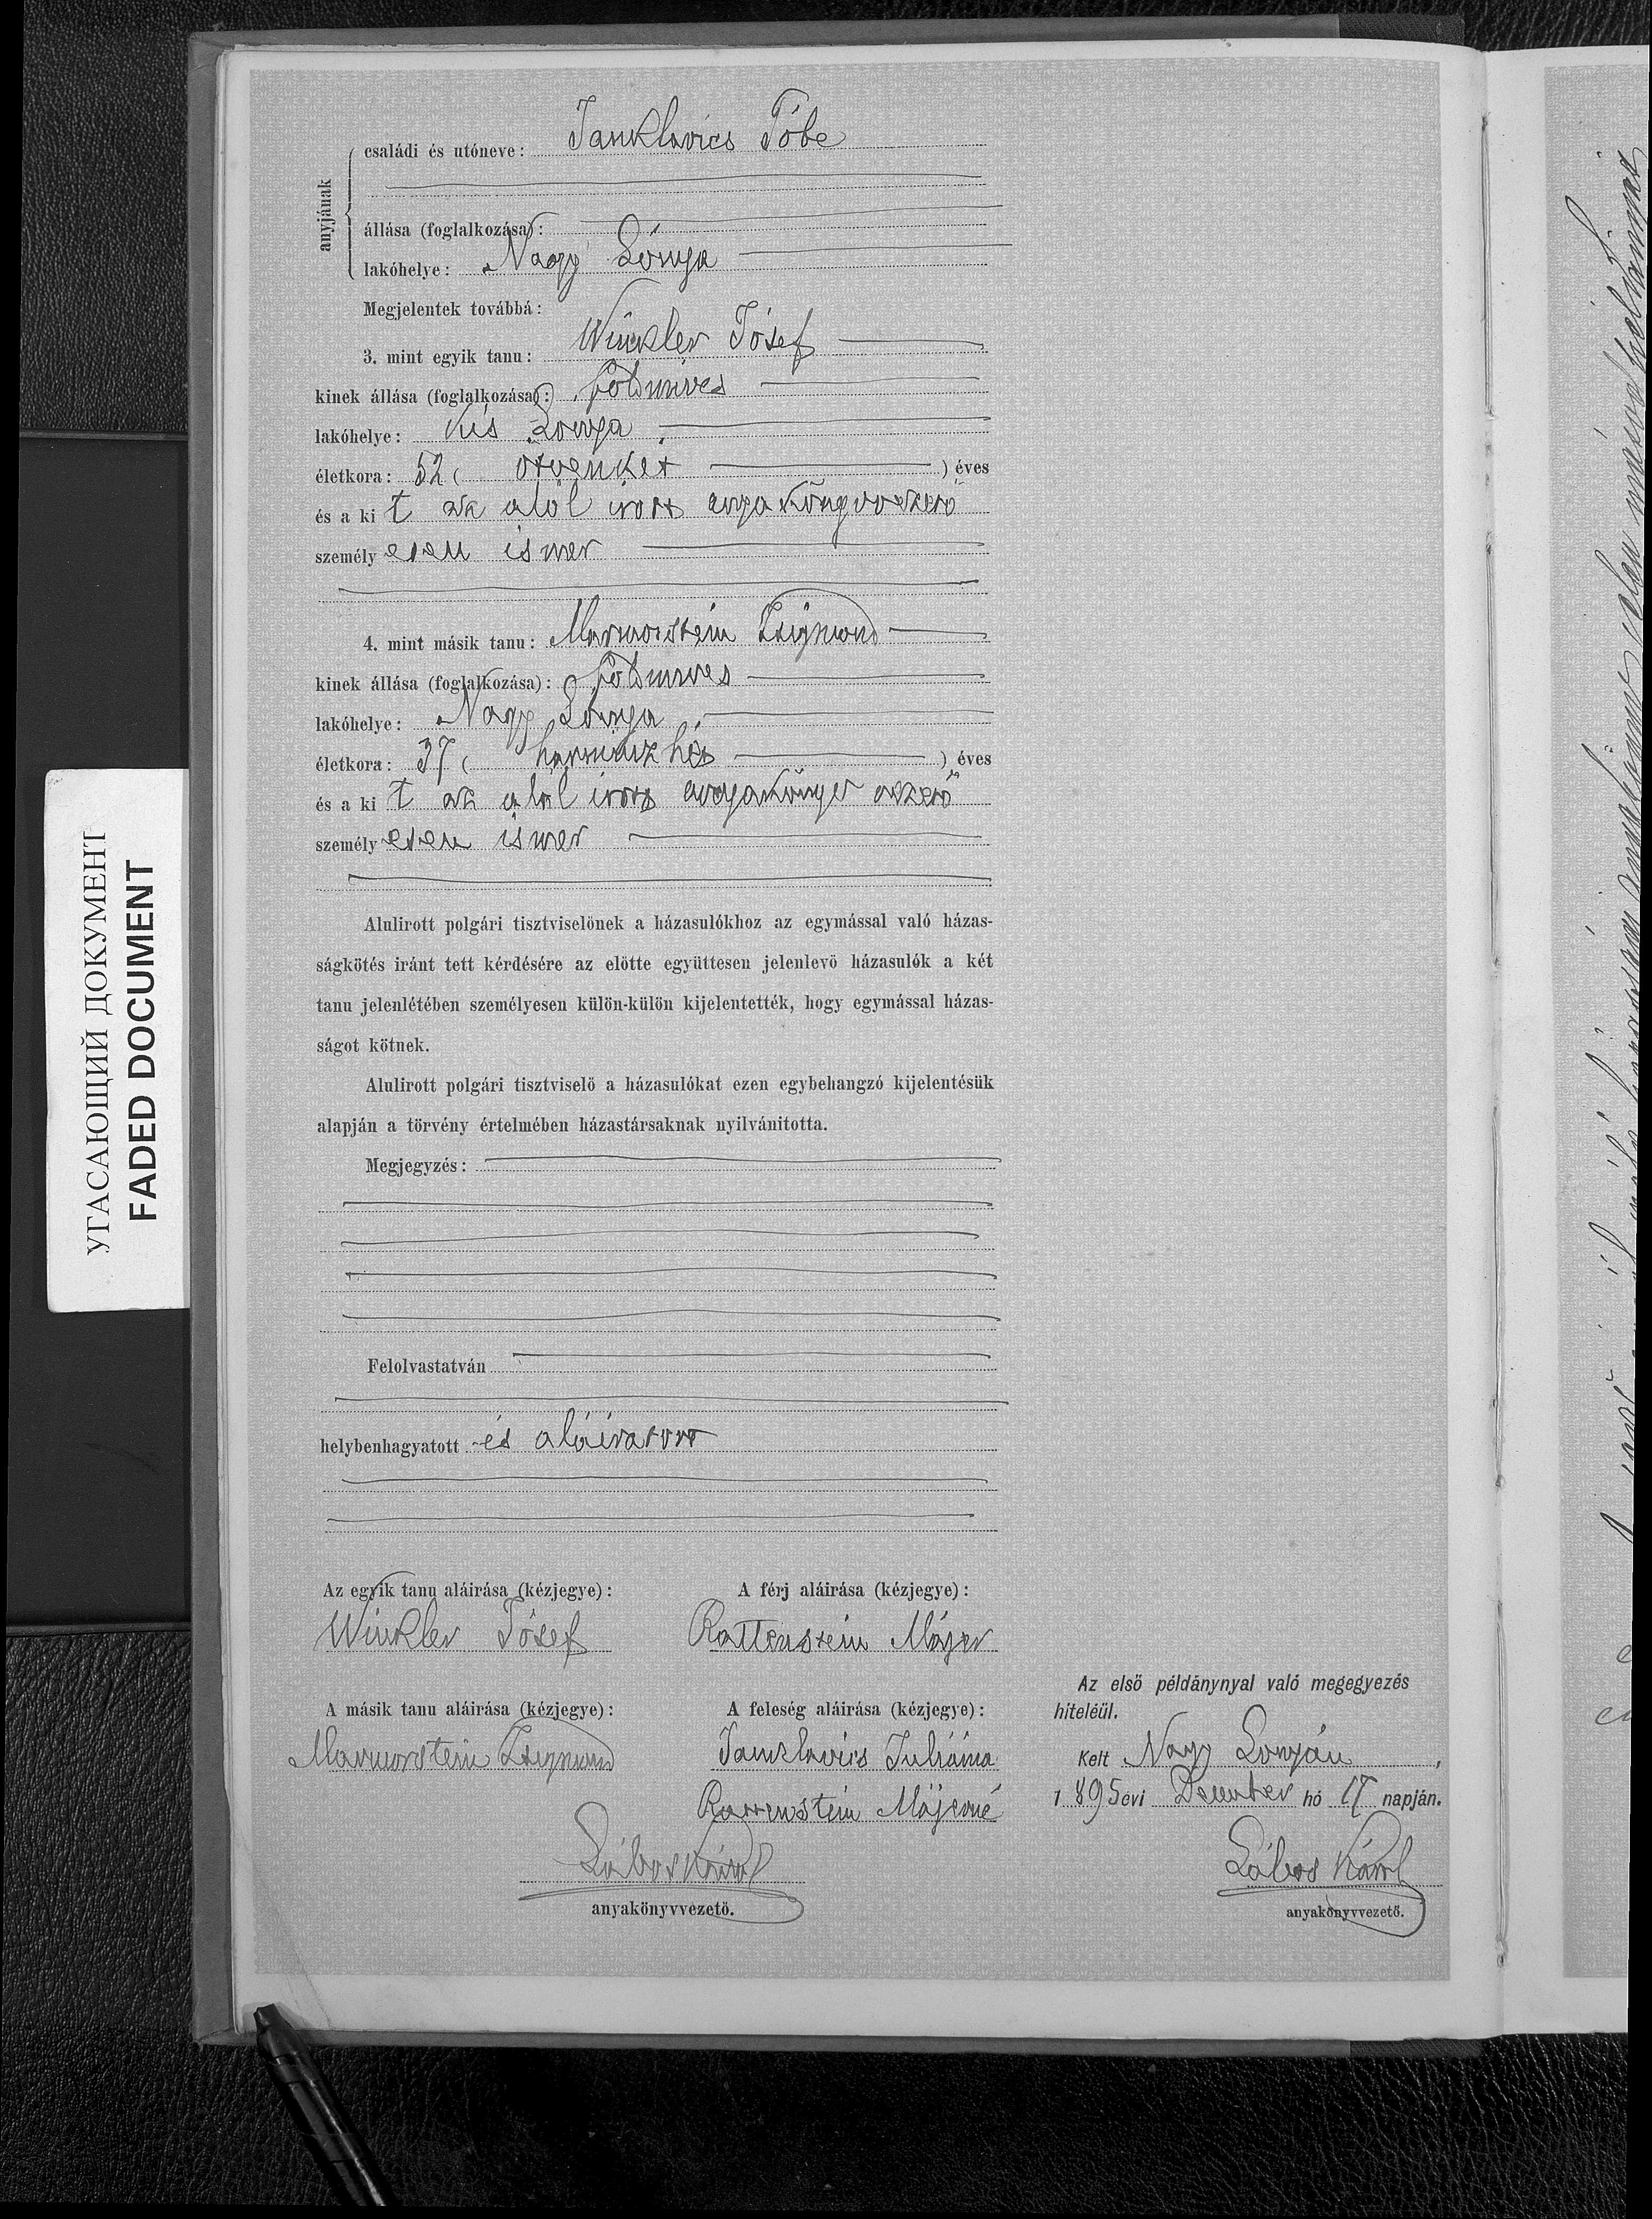 családi és utóneve: Janklovics Tóbe
anyjának
állása (foglalkozása):
lakóhelye: Nagy Lónya
Megjelentek továbbá:
3. mint egyik tanu: Winkler József
kinek állása (foglalkozása): földmives
lakóhelye: Kis Lónya
életkora: 52 ( ötvenket ) éves
és a ki t az alól irott anyakönyvvezető
személy esen ismer
4. mint másik tanu: Marmorstein Zsigmond
kinek állása (foglalkozása): földmives
lakóhelye: Nagy Lónya
életkora: 37 ( harminczhét ) éves
és a ki t az alól irott anyakönyvvezető
személy esen ismer
Alulirott polgári tisztviselönek a házasulókhoz az egymással való házas-
ságkötés iránt tett kérdésére az elötte együttesen jelenlevö házasulók a két
tanu jelenlétében személyesen külön-külön kijelentették, hogy egymással házas-
ságot kötnek.
Alulirott polgári tisztviselö a házasulókat ezen egybehangzó kijelentésük
alapján a törvény értelmében házastársaknak nyilvánitotta.
Megjegyzés:
Felolvastatván
helybenhagyatott és aláiratott
Az egyik tanu aláirása (kézjegye):
Winkler József
A férj aláirása (kézjegye):
Rottenstein Májer
A másik tanu aláirása (kézjegye):
Marmorstein Zsigmond
A feleség aláirása (kézjegye):
Janklovics Juliánna
Rottenstein Májerné
Lábos Károl
anyakönyvvezetö.
Az elsö példánynyal való megegyezés
hiteléül.
Kelt Nagy Lónyán,
1895 évi December hó 17 napján.
Lábos Károl
anyakönyvvezetö.
УГАСАЮЩИЙ ДОКУМЕНТ
FADED DOCUMENT